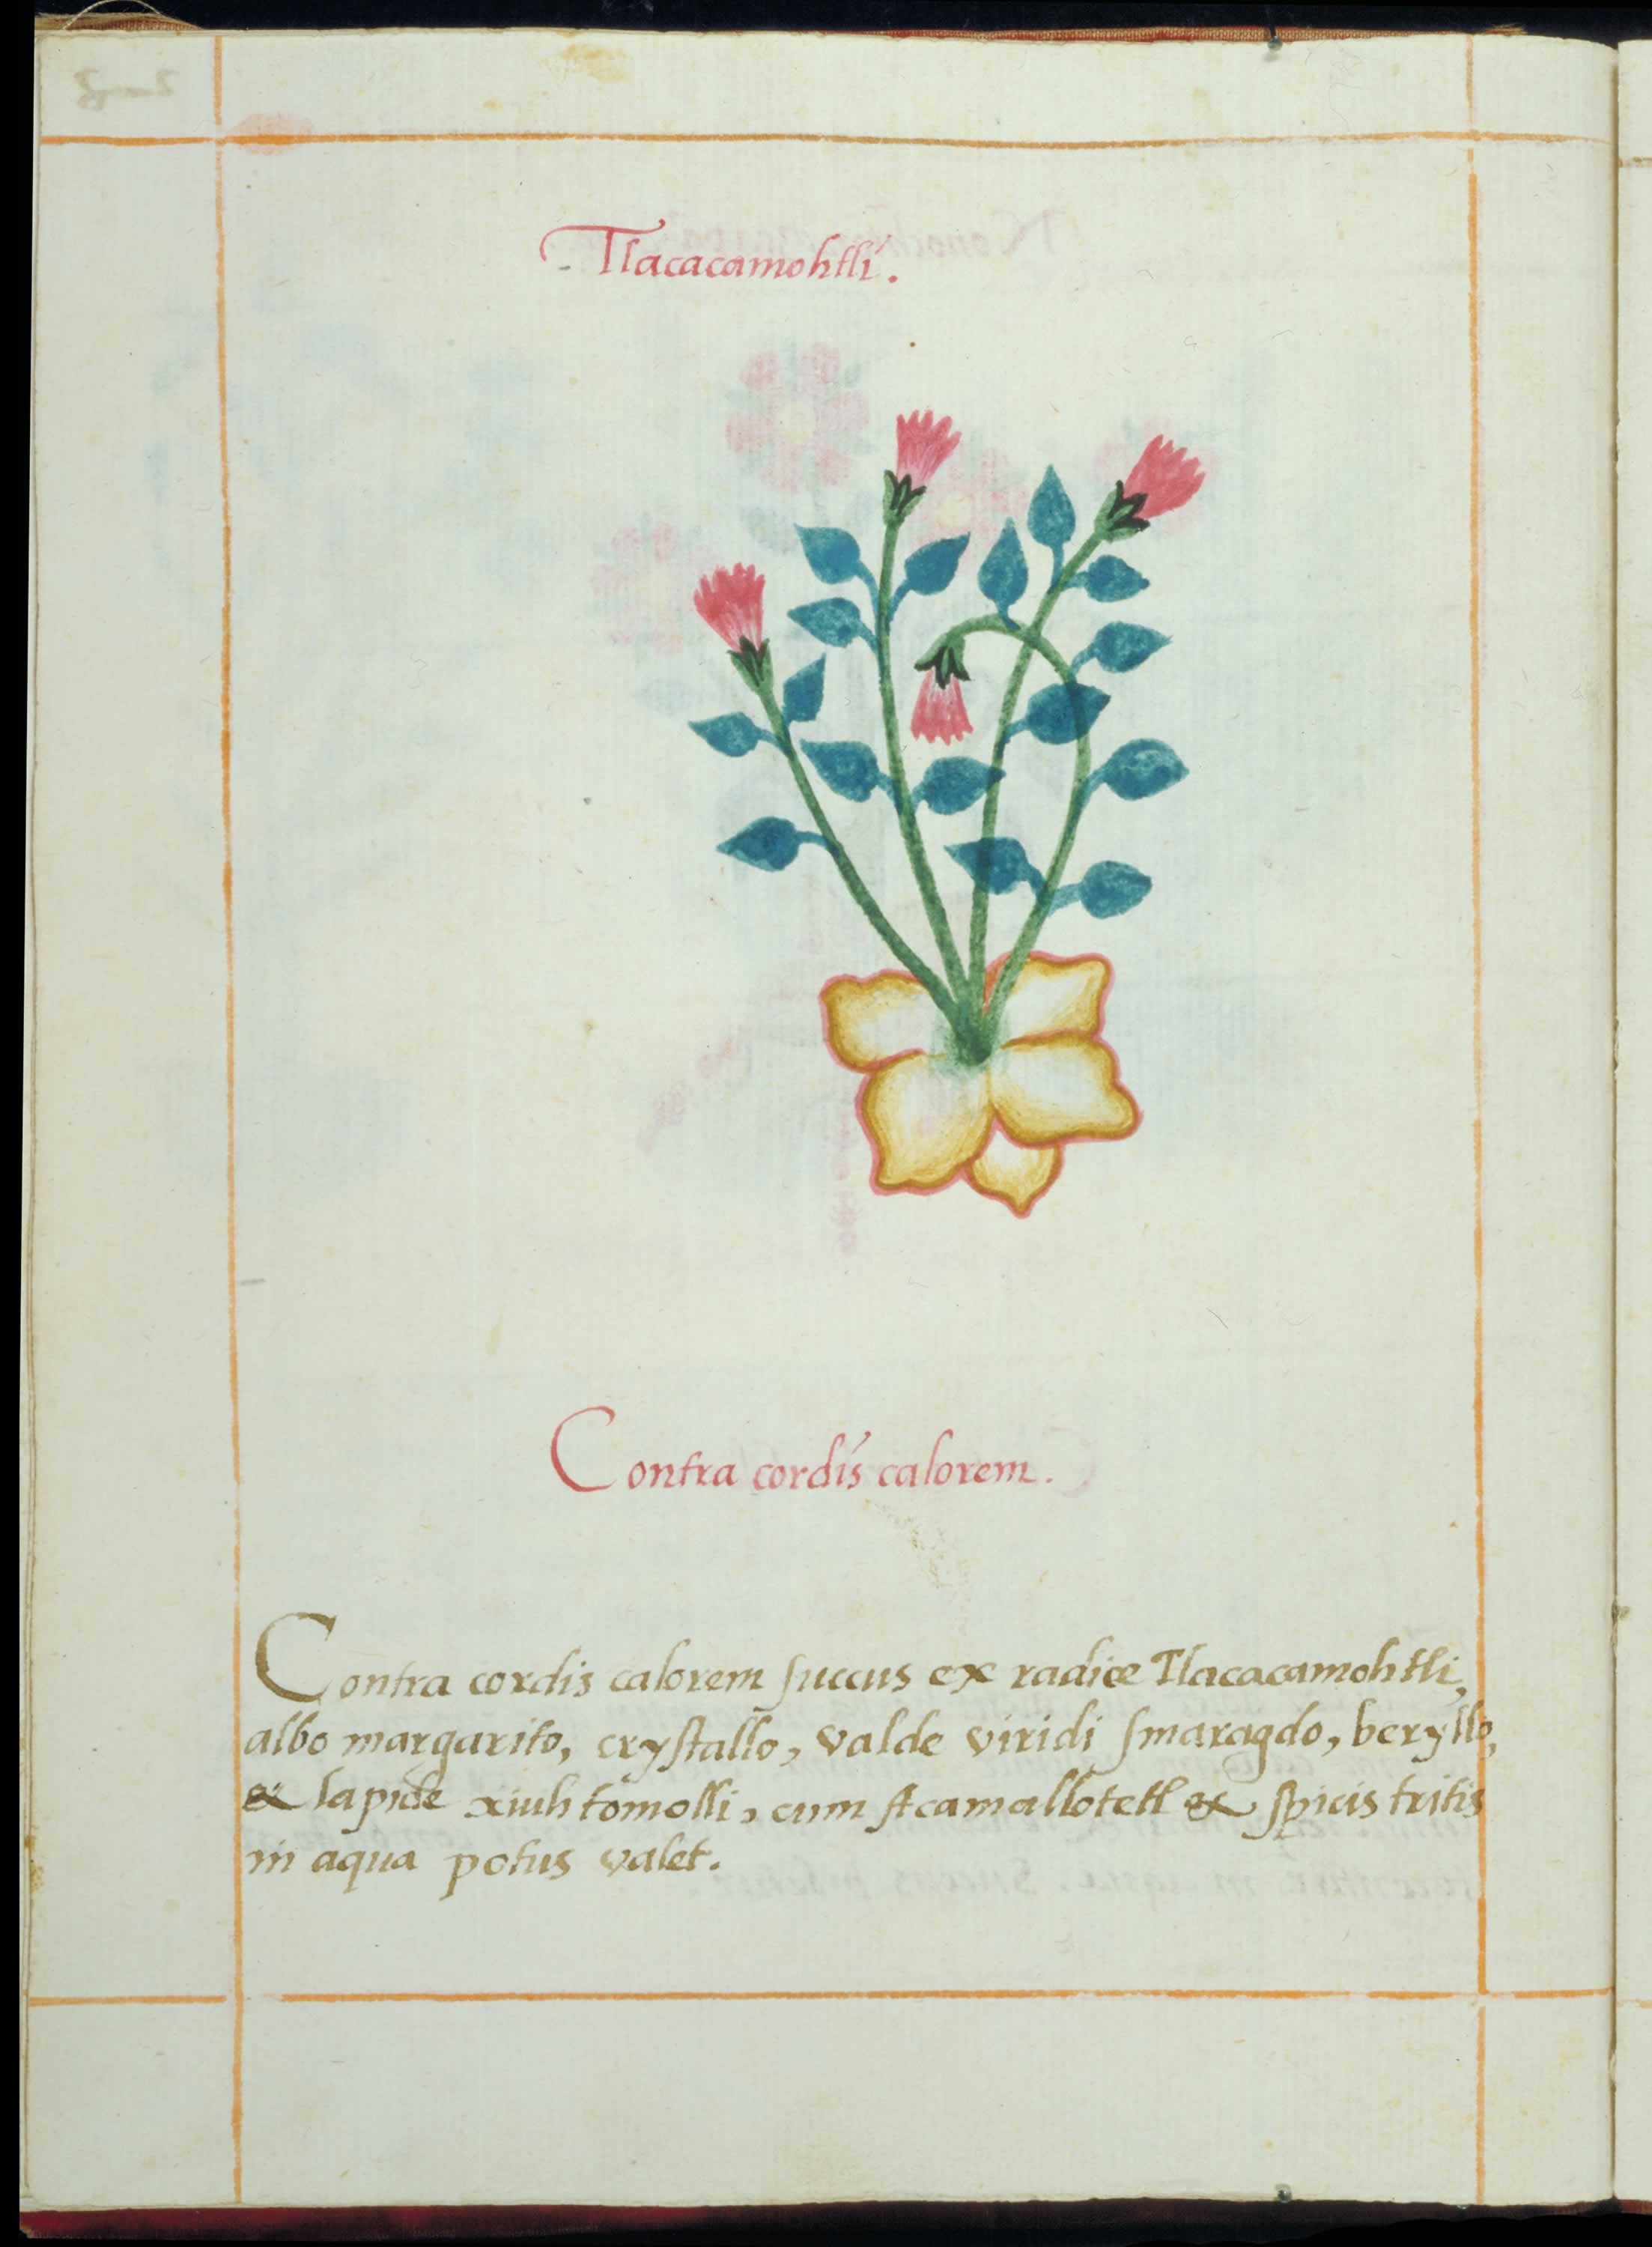 Tlacacamohtli.
Contra cordis calorem.
Contra cordis calorem succus ex radice Tlacacamohtli,
albo margarito, crystallo, valde viridi smaragdo, beryllo,
& lapide xiuhtomolli, cum Acamallotetl & spicis tritis
in aqua potus valet.